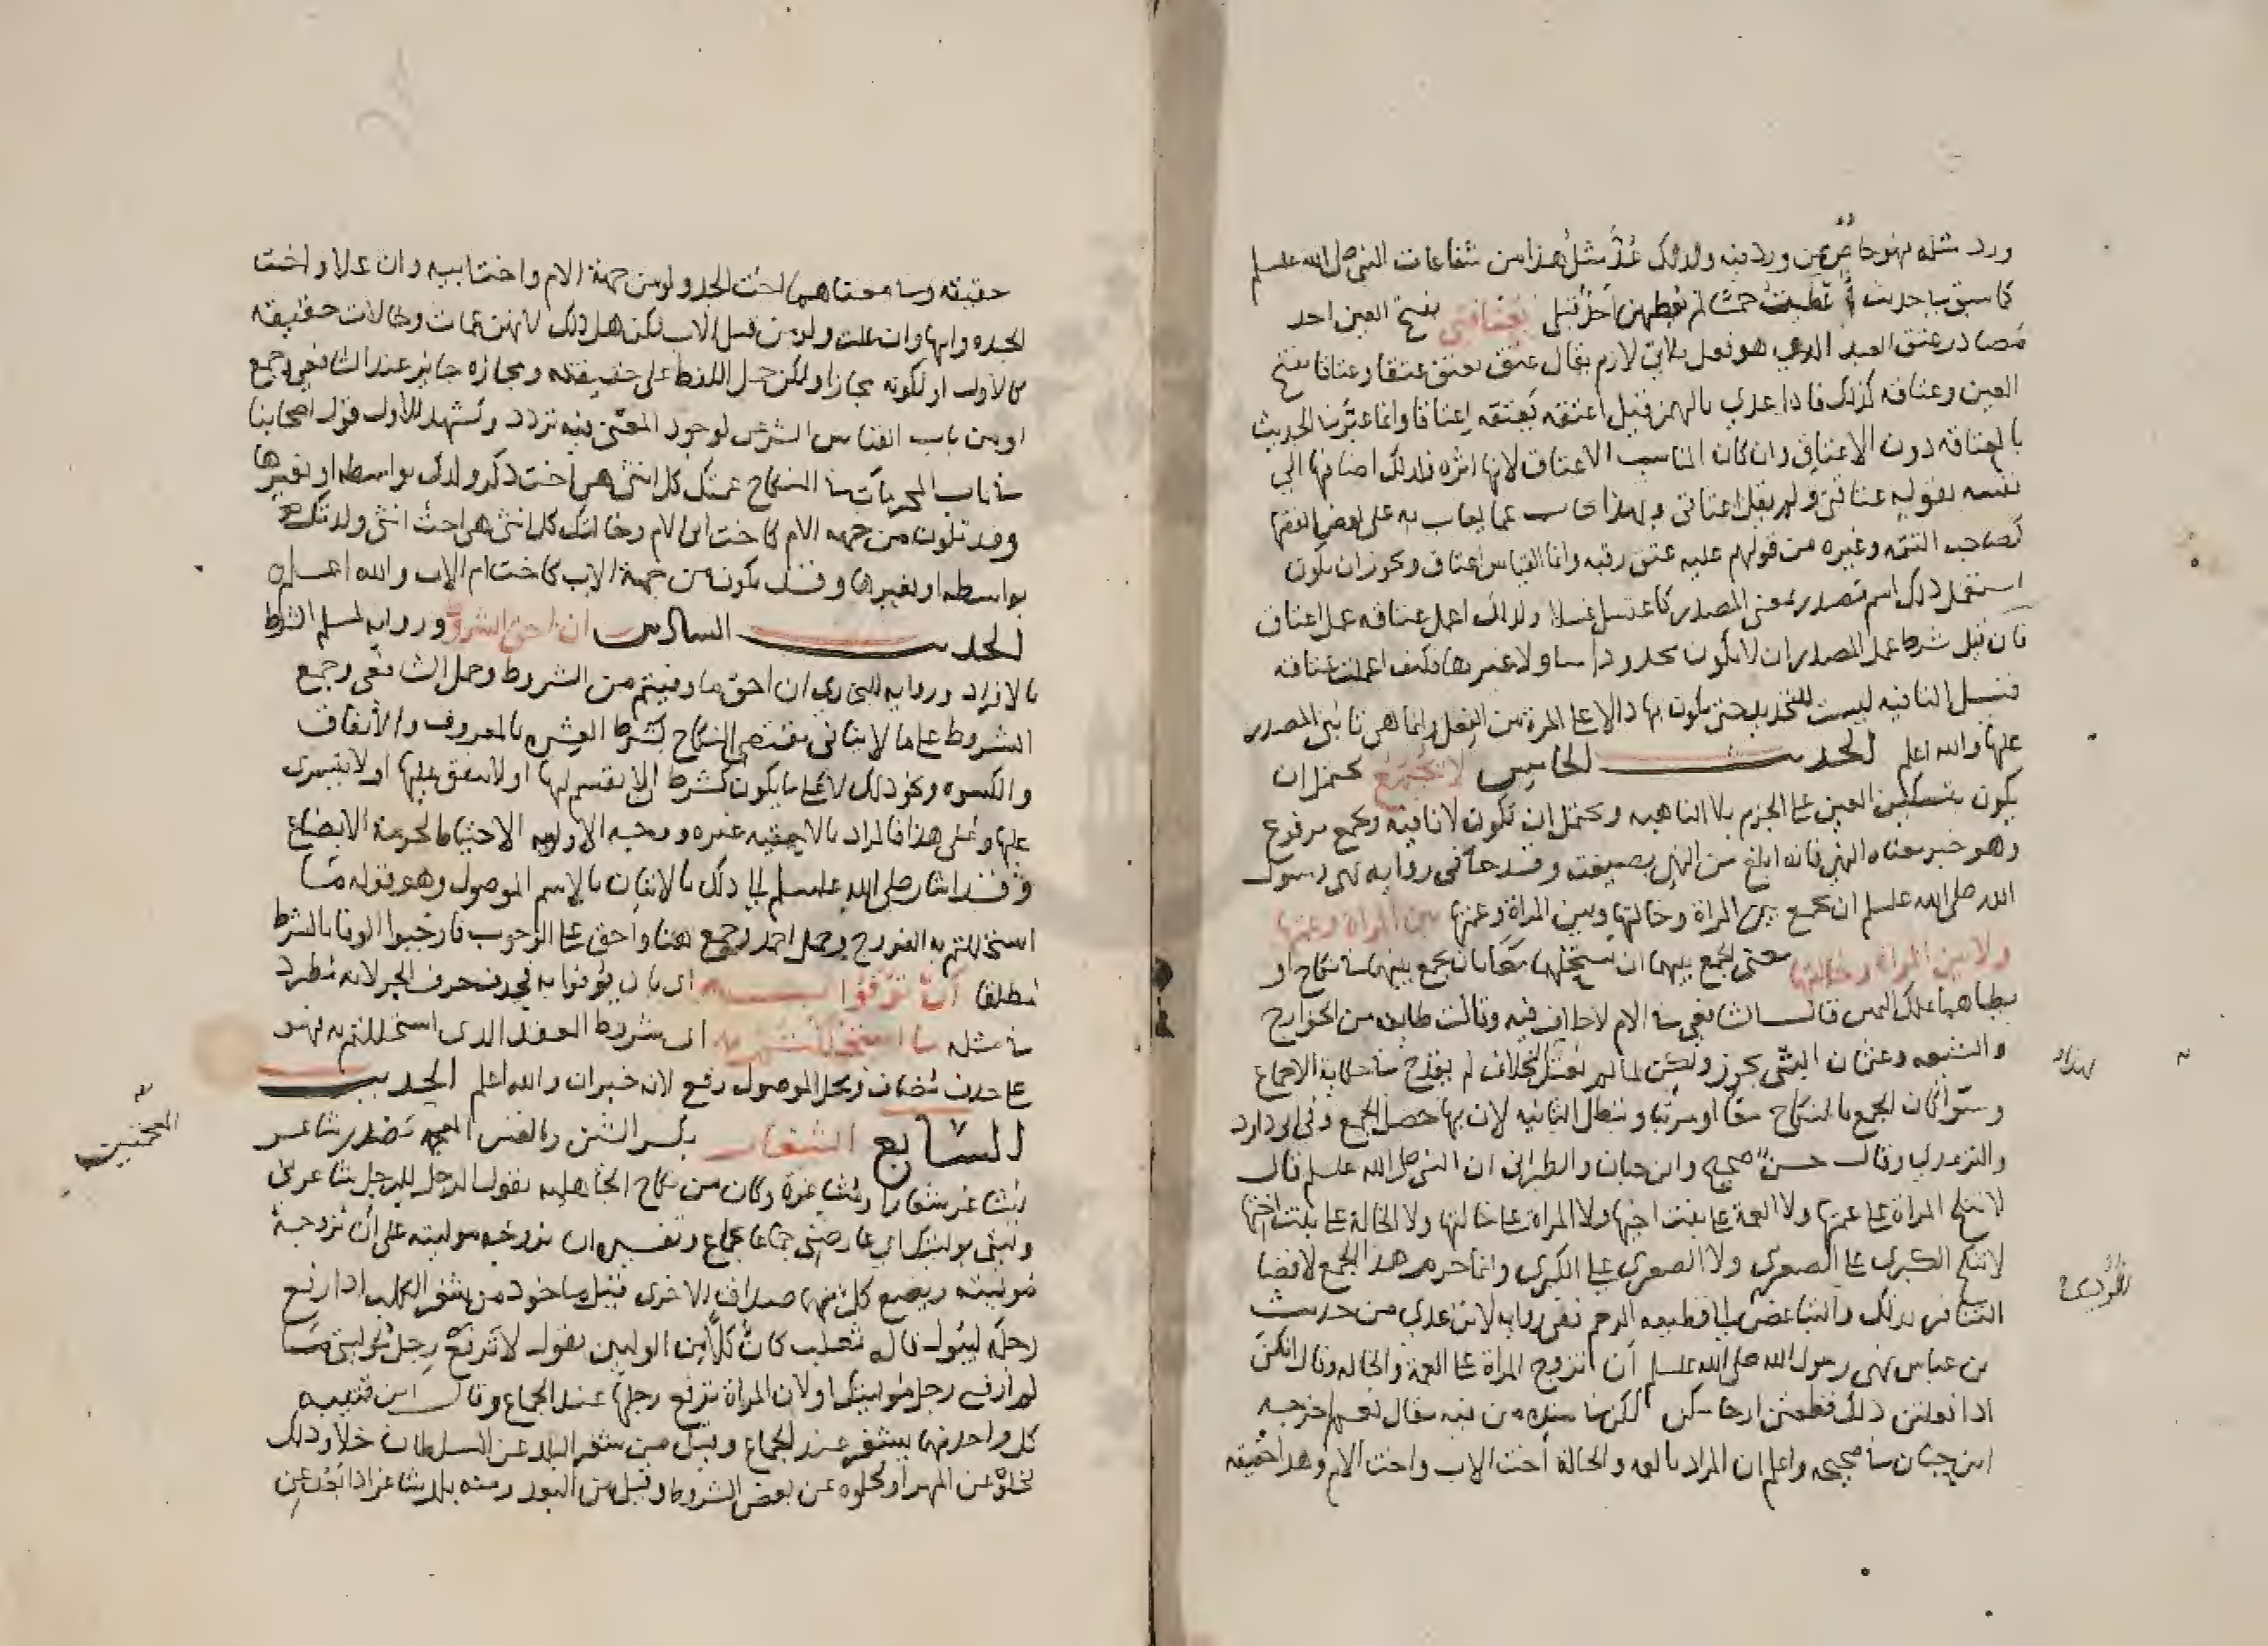 ورد مثله فهو خاص بمن ورد فيه ولذلك عد مثل هذا من شفاعات النبي صلى الله عليه وسلم
كما سبق في حديث أعطيت خمسا لم يعطهن أحد قبلي بعتاقتي بفتح العين احد
مصادر عتق العبد الذي هو فعل ثلاثي لازم يقال عتق يعتق عتقا وعتاقا بفتح
العين وعتاقه كذلك فاذا عدي بالهمز قيل اعتقه يعتقه اعتاقا وانما عبر في الحديث
بالعتاقه دون الاعتاق وان كان المناسب الاعتاق لانها اثره فلذلك اضافها الى
نفسه بقوله عتاقتي ولم يقل اعتاقي وبهذا يجاب عما يعاب به على بعض الفقها
كصاحب التتمه وغيره من قولهم عليه عتق رقبه وانما القياس اعتاق ويجوز ان يكون
استعمل ذلك اسم مصدر بمعنى المصدر كاغتسل غسلا ولذلك اعمل عتاقه عمل اعتاق
فان قيل شرط عمل المصدر ان لا يكون محدودا بتا ولا غيرها فكيف اعملت عتاقه
قيل التا فيه ليست للتحديد حتى يكون بها دالا على المرة من الفعل وانما هي تا بني المصدر
عليها والله اعلم الحديث الخامس لا يجمع يحتمل ان
يكون بتسكين العين على الجزم بلا الناهيه ويحتمل ان تكون لا نافيه ويجمع مرفوع
وهو خبر معناه النهي فانه ابلغ من النهي بصيغته وقد جا في روايه نهى رسول
الله صلى الله عليه وسلم ان يجمع بين المراة وخالتها وبين المراة وعمتها بين المراة وعمتها
ولا بين المراة وخالتها معنى الجمع بينهما ان يستحلهما معا بان يجمع بينهما في نكاح او
يطاهما بملك اليمين قال الشافعي في الام لا خلاف فيه وقالت طايفه من الخوارج
والشيعه وعثمان البتي يجوز ولكن لما لم يعتد بخلاف لم يقدح في حكاية الاجماع
وسوا كان الجمع بالنكاح معا او مرتبا وتبطل الثانيه لان بها حصل الجمع وفي ابي داود
والترمذي وقال حسن صحيح وابن حبان والطبراني ان النبي صلى الله عليه وسلم قال
لا تنكح المراة على عمتها ولا العمة على بنت اخيها ولا المراة على خالتها ولا الخالة على بنت اختها
لا تنكح الكبرى على الصغرى ولا الصغرى على الكبرى وانما حرم هذا الجمع لافضا
التنافر بذلك والتباغض الى قطيعه الرحم ففي روايه لابن عدي من حديث
بن عباس نهى رسول الله صلى الله عليه وسلم ان تزوج المراة على العمة والخاله وقال انكن
اذا فعلتن ذلك قطعتن ارحامكن لكن في سنده من فيه مقال نعم اخرجه
ابن حبان في صحيحه واعلم ان المراد بالعمه والخالة اخت الاب واخت الام وهذا حقيقه
حقيقته وما معناهما اخت الجد ولو من جهة الام واخت ابيه وان علا واخت
الجده وامها وان علت ولو من قبل الاب لكن هل ذلك لانهن عمات وخالات حقيقه
كالاول او لكونه مجازا ولكن حمل اللفظ على حقيقته ومجازه جايز عند الشافعي وجمع
او من باب القياس الشرعي لوجود المعنى فيه تردد ويشهد للاول قول اصحابنا
في باب المحرمات في النكاح عمتك كل انثى هي اخت ذكر ولدك بواسطه او بغيرها
وقد تكون من جهه الام كاخت ابي الام وخالتك كل انثى هي اخت انثى ولدتك
بواسطه او بغيرها وقد يكون من جهة الاب كاخت ام الاب والله اعلم
الحديث السادس ان احق الشروط وروايه لمسلم الشرط
بالافراد وروايه للبخاري ان احق ما وفيتم من الشروط وحمل الشافعي وجمع
الشروط على ما لا ينافي مقتضى النكاح كشرط العشره بالمعروف والانفاق
والكسوه ونحو ذلك لا على ما يكون كشرط ان لا يقسم لها او لا ينفق عليها او لا يتسرى
عليها وعلى هذا فالمراد بالاحقيه غيره ووجه الاولويه الاحتياط لحرمة الابضاع
وقد اشار صلى الله عليه وسلم الى ذلك بالاتيان بالاسم الموصول وهو قوله ما
استحللتم به الفروج وحمل احمد وجمع هنا واحق على الوجوب فاوجبوا الوفا بالشرط
مطلقا ان توفوا به اي بان يوفوا به فحذف حرف الجر لانه مطرد
في مثله ما استحللتم به اي شروط العقد الذي استحللتم به فهو
على حذف مضاف ومحل الموصول رفع لانه خبر ان والله اعلم الحديث
السابع الشغار بكسر الشين وبالغين المعجمه مصدر شاغر
يشاغر شغارا ومشاغرة وكان من نكاح الجاهليه يقول الرجل للرجل شاغرني
وليتي بوليتك اي عاوضني جماعا بجماع وتفسيره ان يزوجه موليته على ان يزوجه
موليته ويضع كل منهما صداق الاخرى قيل ماخوذ من شغر الكلب اذا رفع
رجله ليبول قال ثعلب كان كلا من الوليين يقول لا ترفع رجل موليتي ما
لم ارفع رجل موليتك او لان المراة ترفع رجلها عند الجماع وقال ابن قتيبه
كل واحد منهما يشغر عند الجماع وقيل من شغر البلد عن السلطان خلا وذلك
لخلوه عن المهر او لخلوه عن بعض الشروط وقيل من البعد ومنه بلد شاغر اذا بعد عن